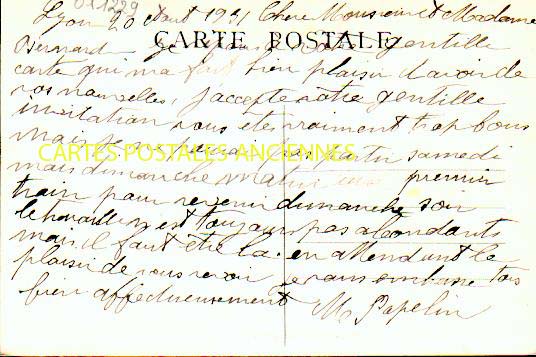 011229
Lyon 20 Aout 1931 Chere Monsieur et Madame
CARTE POSTALE
Bernard gentille
carte qui ma fait bien plaisir davoir de
vos nouvelles, j'accepte votre gentille
invitation vous êtes vraiment trop bons
mais partir samedi
CARTES POSTALES ANCIENNES
mais dimanche matin premier
train pour revenir dimanche soir
le travaille n est toujours pas abondants
mais il faut être la. en attendant le
plaisir de vous revoir je vous embrasse tous
bien affectueusement M. Papelin